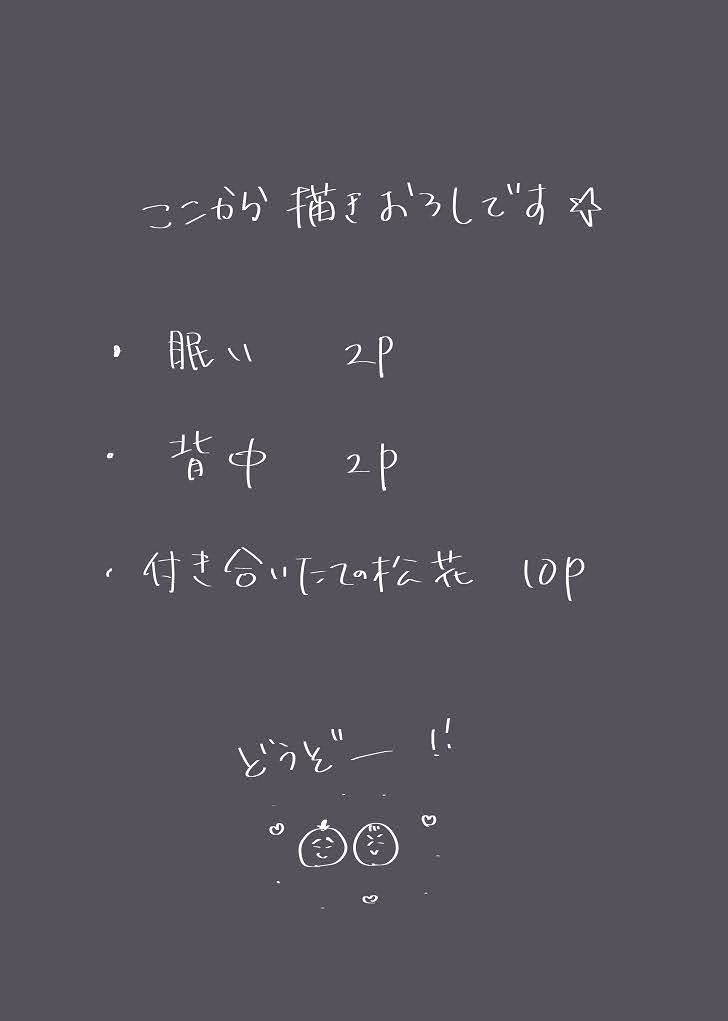 ここから描きおろしです☆
・眠い 2P
・背中 2P
・付き合いたての松花 10P
どうぞー!!